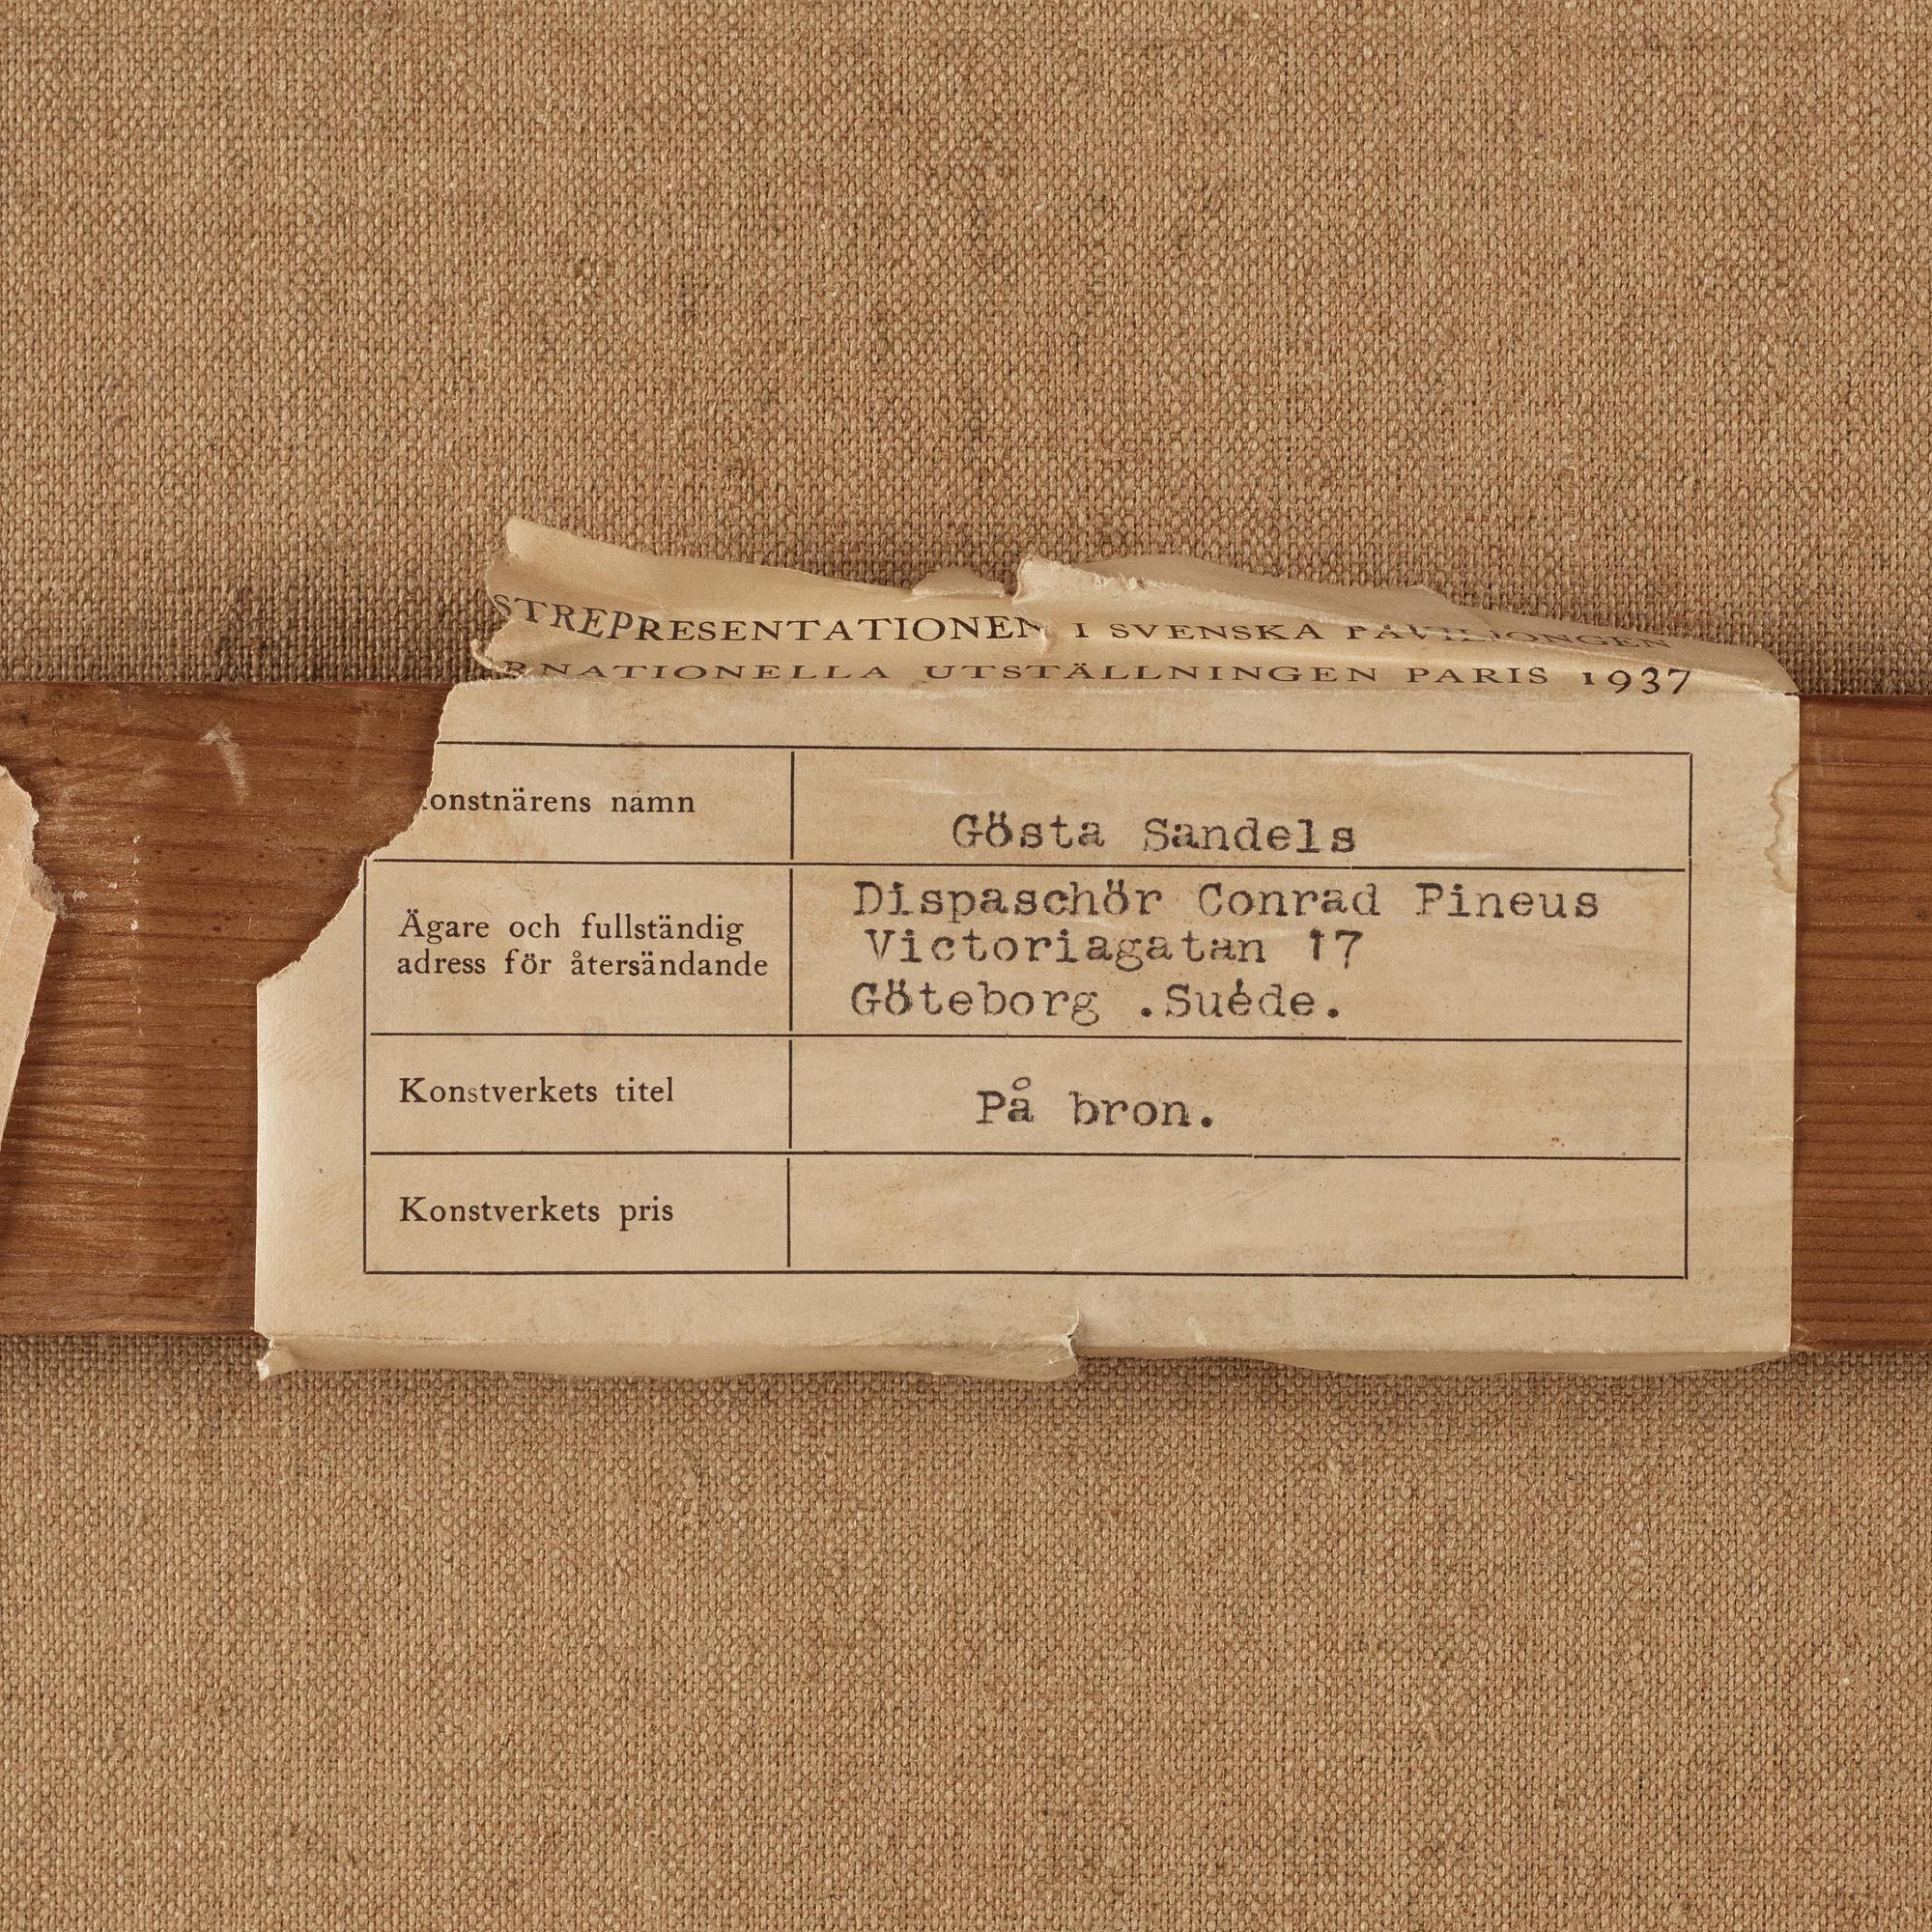 STREPRESENTATIONEN I SVENSKA PAVILJONGEN
RNATIONELLA UTSTÄLLNINGEN PARIS 1937
onstnärens namn
Gösta Sandels
Ägare och fullständig
adress för återsändande
Dispaschör Conrad Pineus
Victoriagatan 17
Göteborg .Suéde.
Konstverkets titel
På bron.
Konstverkets pris